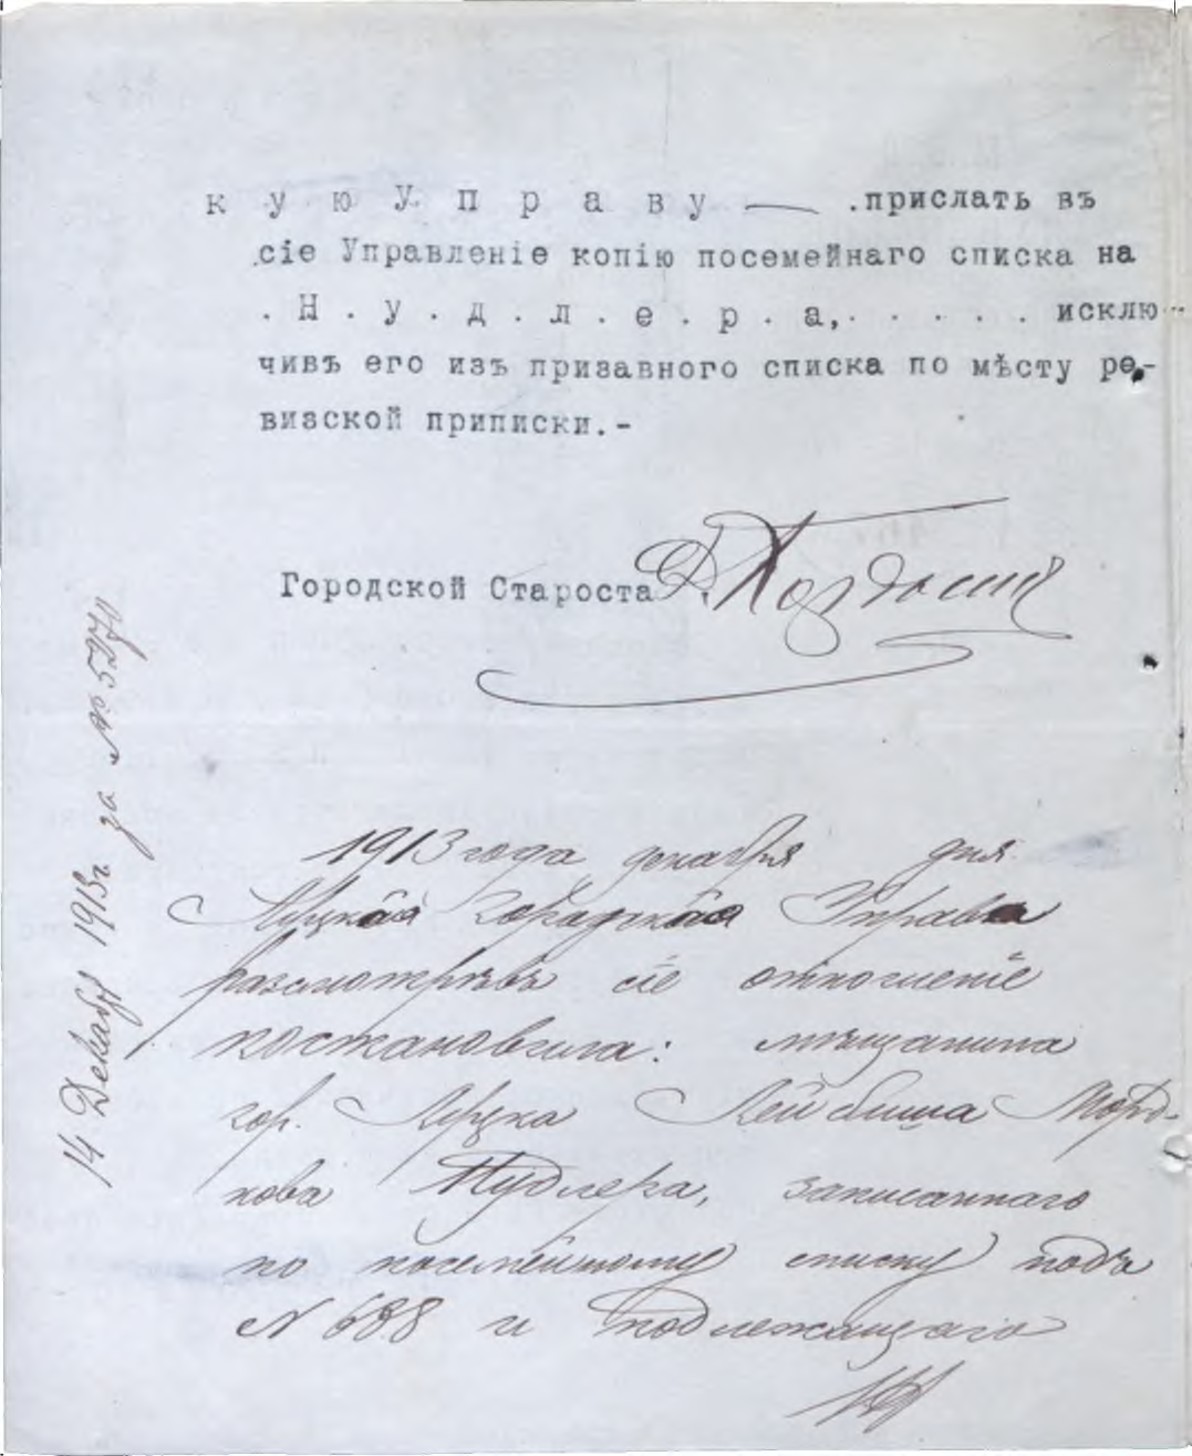 к у ю У п р а в у — .прислать въ
.сіе Управленіе копію посемейнаго списка на
. Н . у . д . л . е . р . а, . . . . . исклю-
чивъ его изъ призавного списка по мѣсту ре-
визской приписки.-
Городской Староста
14 Декабря 1913г. за № 5970
1913 года декабря дня
Луцкая Городская Управа
разсмотрѣвъ сіе отношеніе
постановила: мѣщанина
гор. Луцка Лейбиша Морд-
кова Нудлера, записаннаго
по посемейному списку подъ
N 688 и подлежащаго